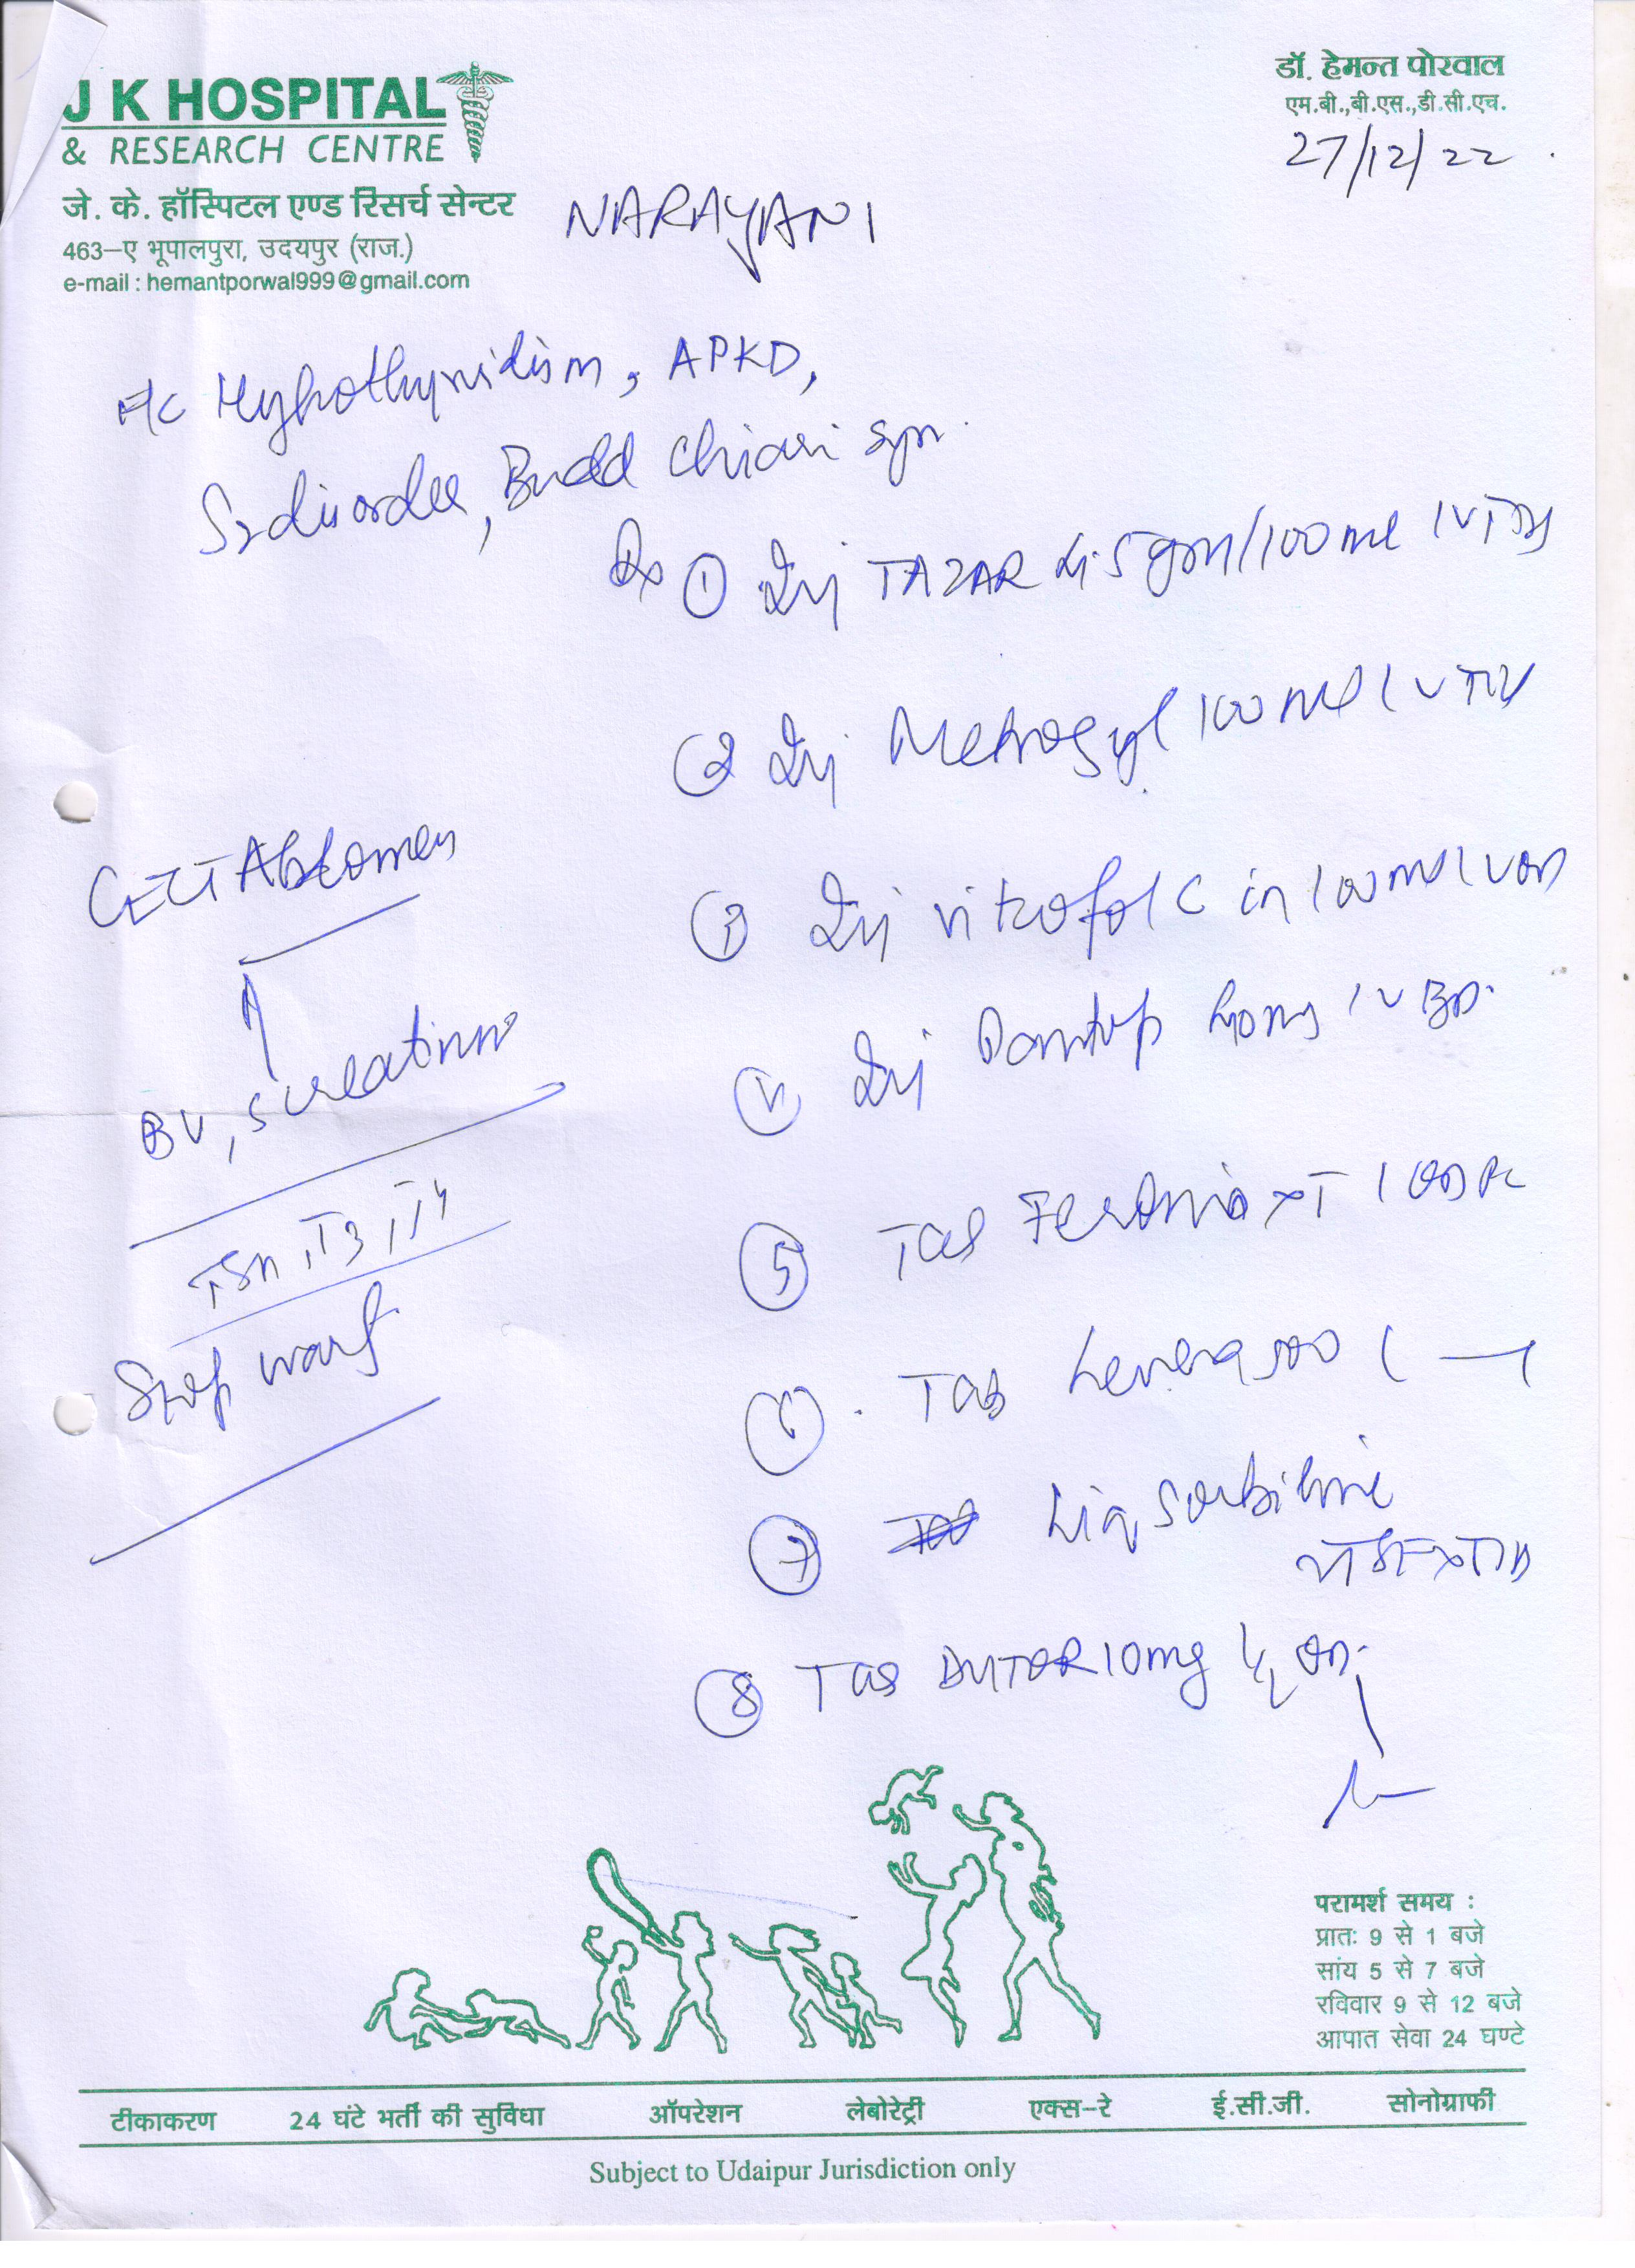 J K HOSPITAL
& RESEARCH CENTRE
जे. के. हॉस्पिटल एण्ड रिसर्च सेन्टर
463–ए भूपालपुरा, उदयपुर (राज.)
e-mail : hemantporwal999@gmail.com
डॉ. हेमन्त पोरवाल
एम.बी.,बी.एस.,डी.सी.एच.
27/12/22
NARAYANI
Hypothyroidism, APKD,
Sz disorder, Budd Chiari syn.
Rx ① Inj TAZAR 4.5 gm/100 ml IV TDS
② Inj Metrogyl 100 ml IV TDS
③ Inj vitcofol C in 100 ml IV OD
Inj Pantop 40 mg IV BD.
⑤ Tab XT 1 OD
Tab Levera 500
⑦ Liq Sorbiline
⑧ Tab DYTOR 10 mg ½ OD.
CECT Abdomen
BU, S creatinine
TSH, T3, T4
Stop warf
परामर्श समय :
प्रातः 9 से 1 बजे
सांय 5 से 7 बजे
रविवार 9 से 12 बजे
आपात सेवा 24 घण्टे
टीकाकरण 24 घंटे भर्ती की सुविधा ऑपरेशन लेबोरेट्री एक्स–रे ई.सी.जी. सोनोग्राफी
Subject to Udaipur Jurisdiction only